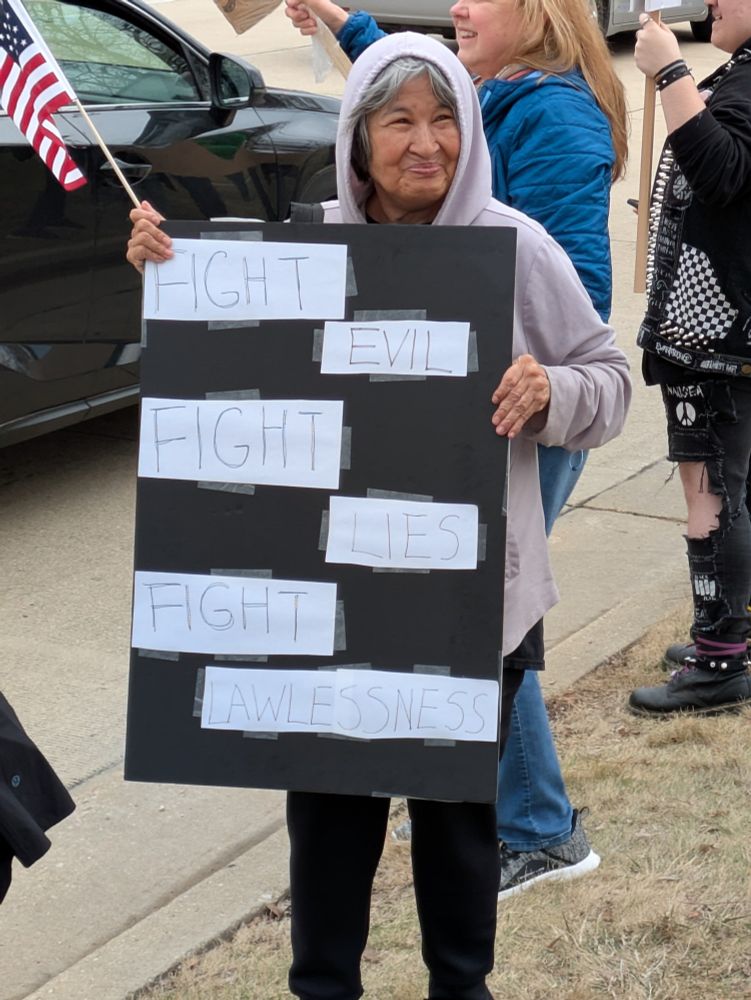 FIGHT
EVIL
FIGHT
LIES
FIGHT
LAWLESSNESS
NAUSEA